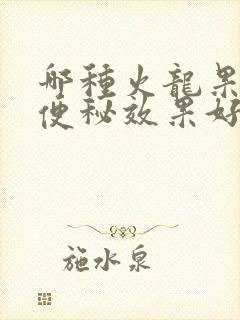 哪種火龍果
便秘效果好
施水泉